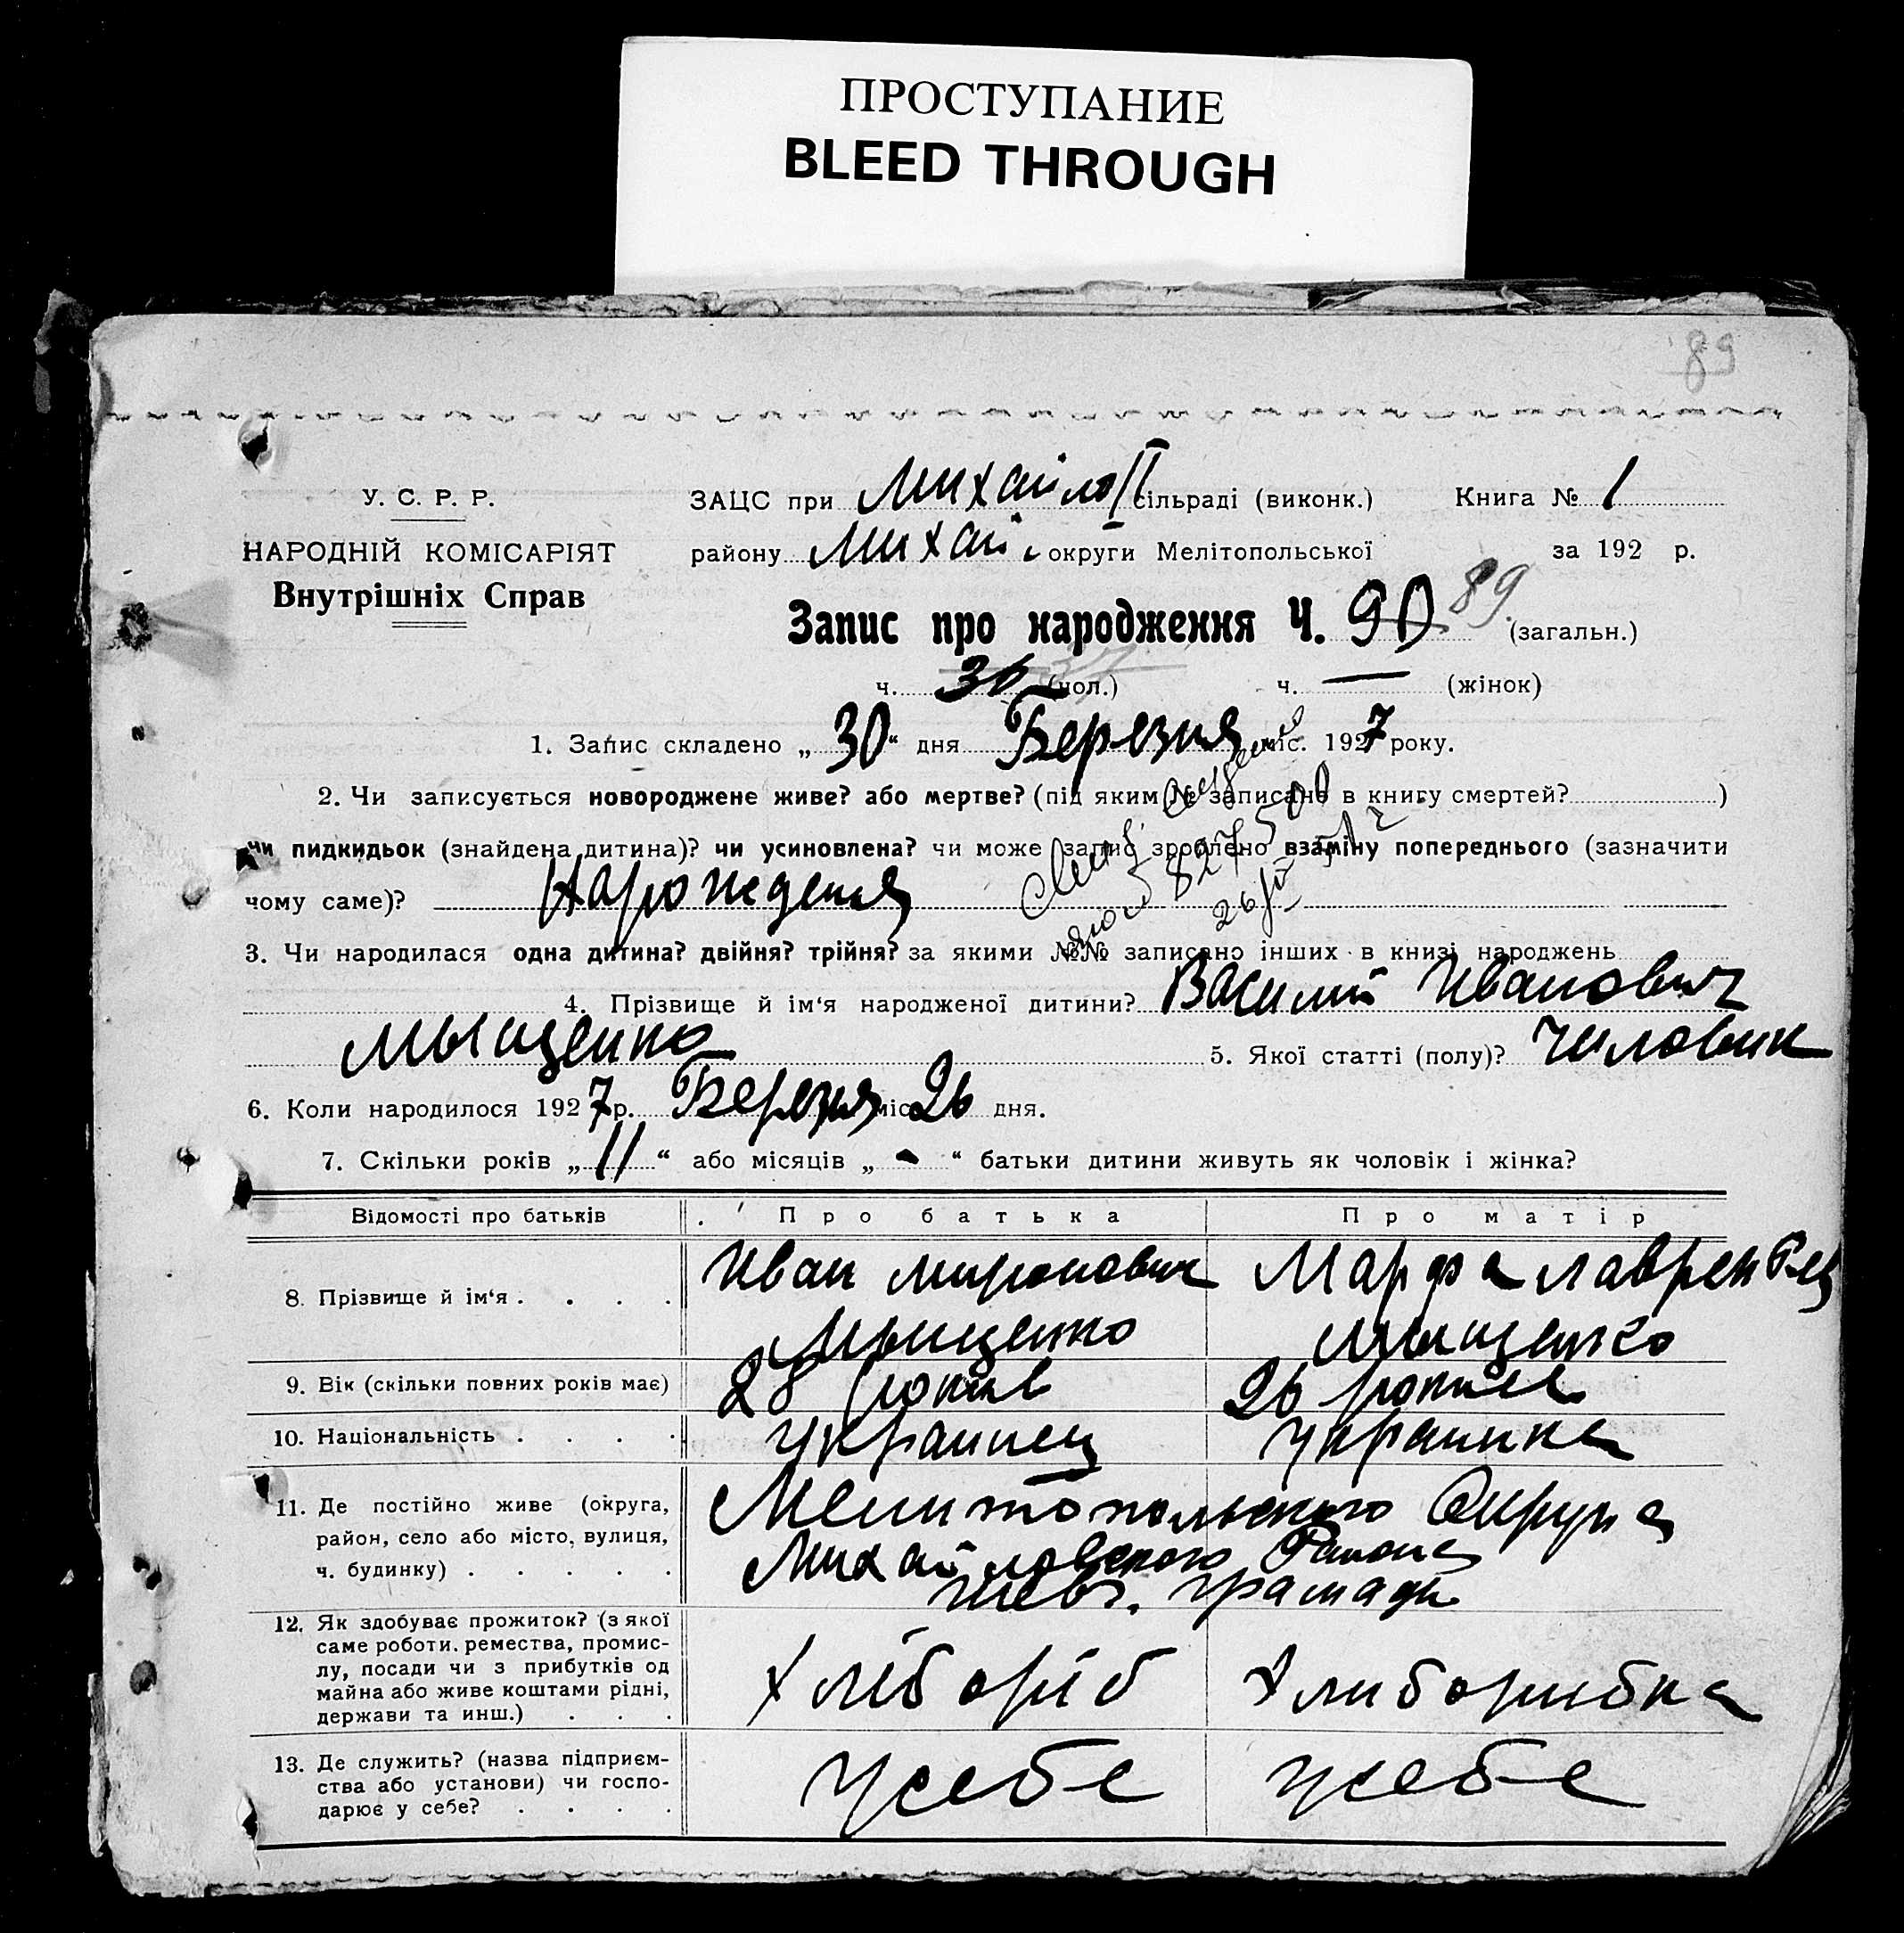 ПРОСТУПАНИЕ
BLEED THROUGH
89
У. С. Р. Р.
НАРОДНІЙ КОМІСАРІЯТ
Внутрішніх Справ
ЗАЦС при Михайло ІІ сільраді (виконк.) Книга № 1
району Михай округи Мелітопольської за 192 р.
Запис про народження Ч. 90 89. (загальн.)
ч. 36 37 (чол.) ч. — (жінок)
1. Запис складено „ 30 “ дня Березня міс. 1927 року.
2. Чи записується новороджене живе? або мертве? (під яким № записано в книгу смертей? )
чи пидкидьок (знайдена дитина)? чи усиновлена? чи може запис зроблено взаміну попереднього (зазначити
чому саме)? Нарождения
827500
3. Чи народилася одна дитина? двійня? трійня? за якими №№ записано інших в книзі народжень
4. Прізвище й ім‘я народженої дитини? Василий Иванович
Мыщенко 5. Якої статті (полу)? Чиловик
6. Коли народилося 1927 р. Березня міс 26 дня.
7. Скільки років „ 11 “ або місяців „ - “ батьки дитини живуть як чоловік і жінка?
Відомості про батьків Про батька Про матір
8. Прізвище й ім‘я . . . . Иван миронович Марфа лаврентьев
Мыщенко мыщенко
9. Вік (скільки повних років має) 28 рокив 26 рокив
10. Національність . . . . украинец украинка
11. Де постійно живе (округа, район, село або місто, вулиця, ч. будинку) . . . . . Мелитопольского Округа
Михайловского Района
Шевч. грамади
12. Як здобуває прожиток? (з якої
саме роботи. ремества, промис-
лу, посади чи з прибутків од
майна або живе коштами рідні,
держави та инш.) . . . Хліборіб Хлиборибка
13. Де служить? (назва підприєм-
ства або установи) чи госпо-
дарює у себе? . . . . усебе усебе